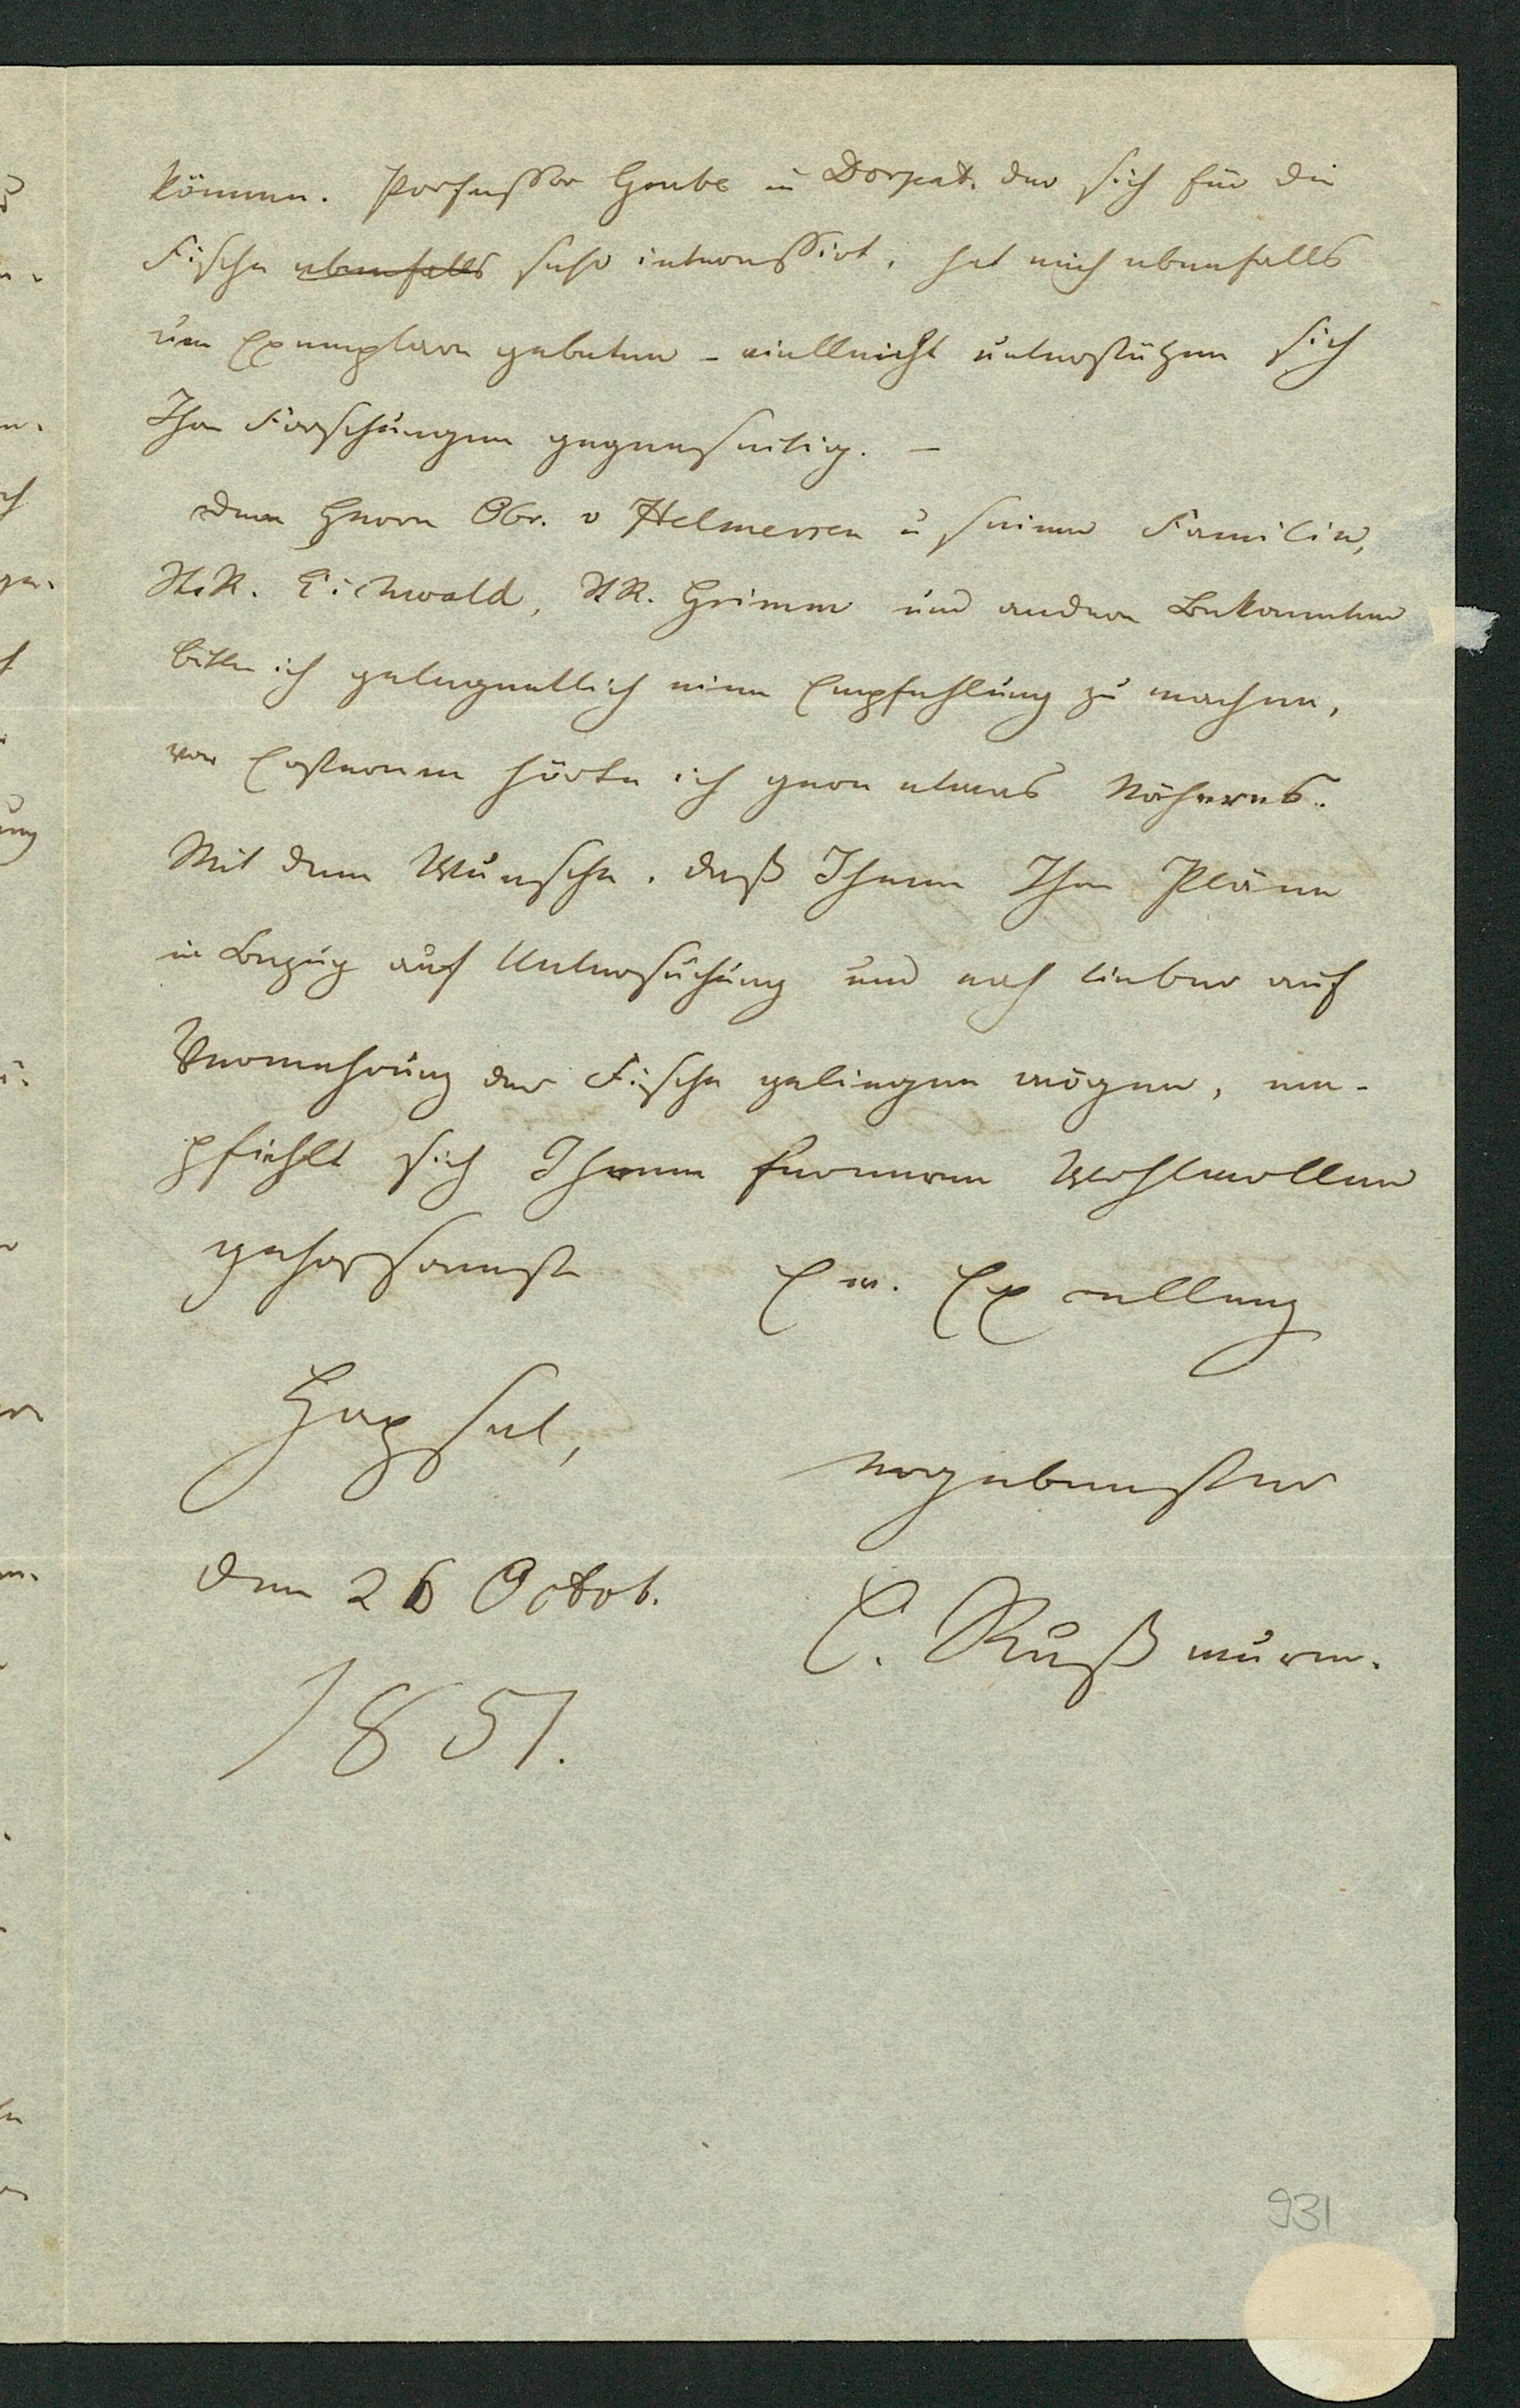 können. Professor Grube in Dorpat, der sich für die
Fische ebenfalls sehr interessirt, hat mich ebenfalls
um Exemplare gebeten – vielleicht unterstützen sich
Ihre Forschungen gegenseitig. –
Dem Herrn Obr. v Helmersen u seiner Familie,
StR. Eichwald, StR. Grimm und andern Bekannten
bitte ich gelegentlich eine Empfehlung zu machen,
von Ersterem hörte ich gern etwas Näheres.
Mit dem Wunsche, daß Ihnen Ihre Pläne
in Bezug auf Untersuchung und noch lieber auf
Vermehrung der Fische gelingen mögen, em-
pfiehlt sich Ihrem ferneren Wohlwollen
gehorsamst
Ew. Excellenz
Hapsal,
ergebenster
den 26 Octob.
C. Rußwurm.
1851.
931